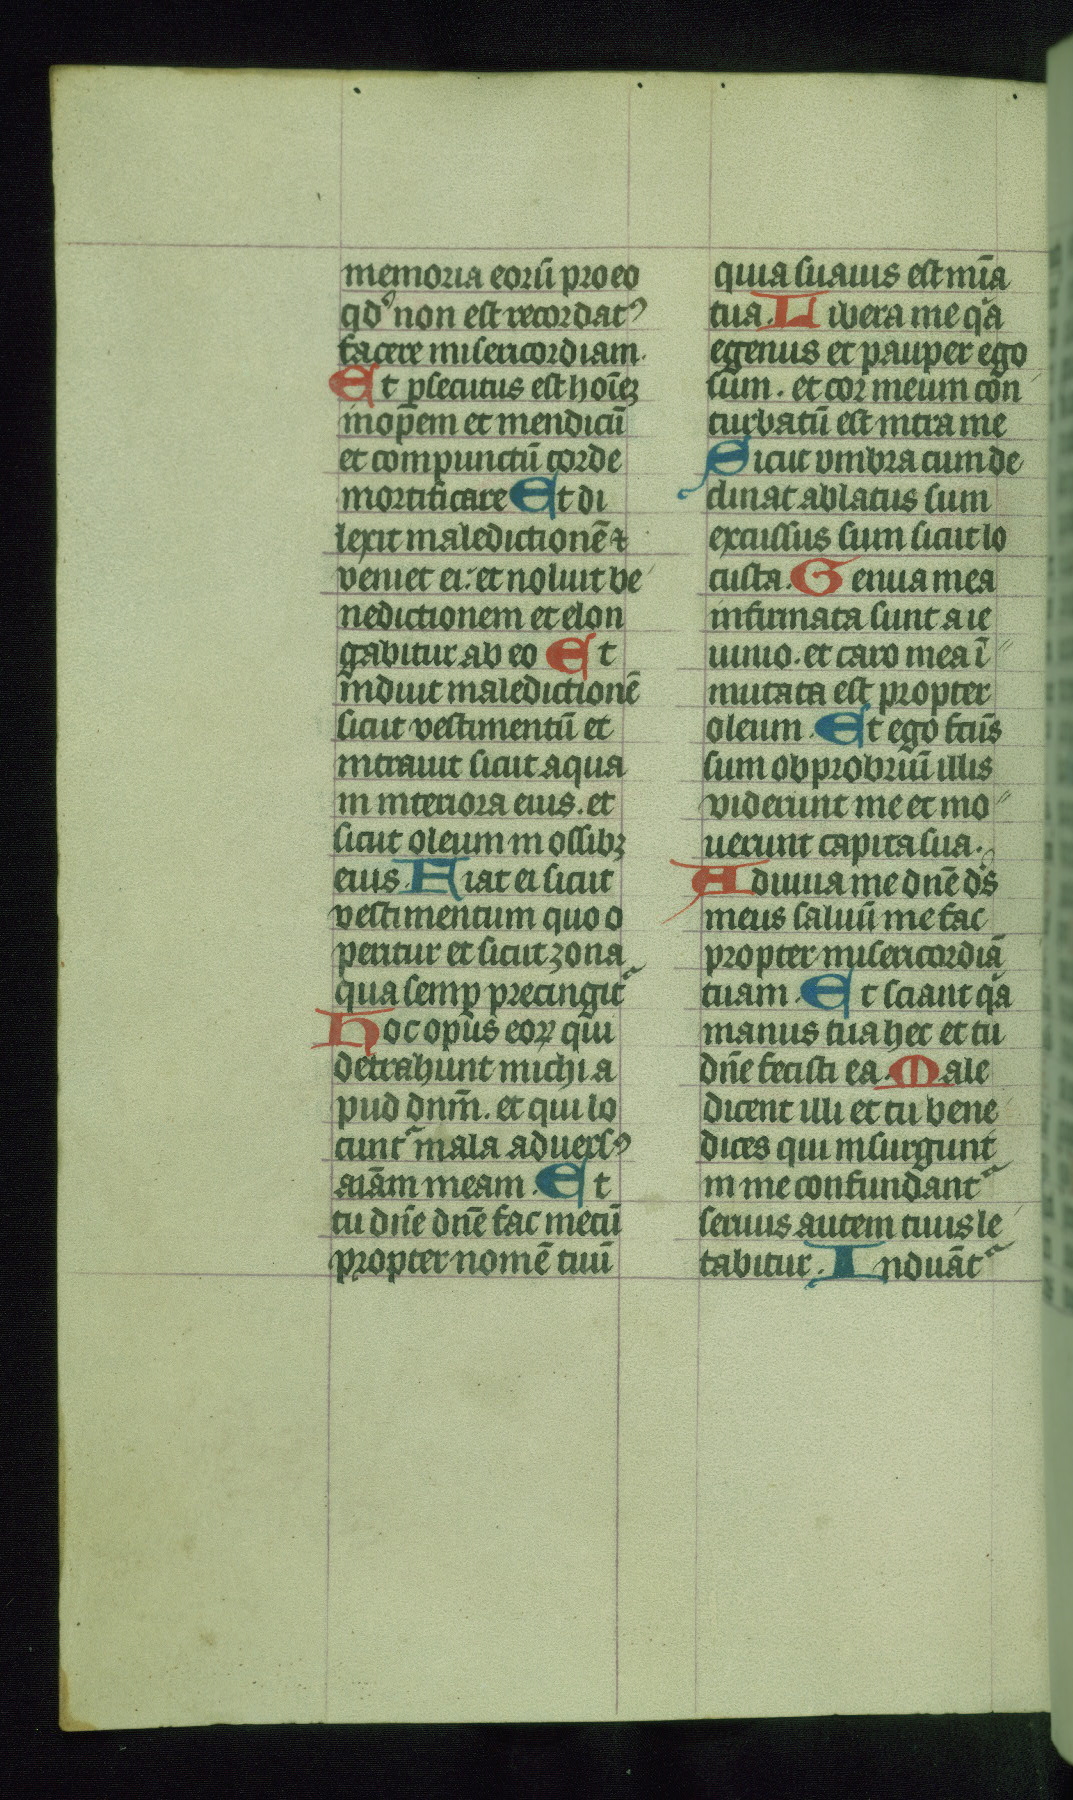 memoria eorū pro eo
qdͦ non est recordatꝰ
facere misericordiam.
Et ꝑsecutus est hoīeꝫ
inopem et mendicū
et compunctū corde
mortificare Et di
lexit maledictionē ⁊
veniet ei: et noluit be
nedictionem et elon
gabitur ab eo Et
induit maledictionē
sicut vestimentū et
intrauit sicut aqua
in interiora eius. et
sicut oleum in ossibꝫ
eius. Fiat ei sicut
vestimentum quo o
peritur et sicut zona
qua semꝑ precingit᷑
Hoc opus eoꝝ qui
detrahunt michi a
pud dnm̄. et qui lo
cunt᷑ mala aduersꝰ
aīam meam. Et
tu dn̄e dn̄e fac mecū
propter nomē tuū
quia suauis est mīa
tua. Libera me qͣa
egenus et pauper ego
sum. et cor meum con
turbatū est intra me
Sicut vmbra cum de
clinat ablatus sum
excussus sum sicut lo
custa. Genua mea
infirmata sunt a ie
iunio. et caro mea ī
mutata est propter
oleum. Et ego fctūs
sum obprobriū illis
viderunt me et mo
uerunt capita sua.
Adiuua me dn̄e ds̄
meus saluū me fac
propter misericordiā
tuam. Et sciant qͣa
manus tua hec et tu
dn̄e fecisti ea. Male
dicent illi et tu bene
dices qui insurgunt
in me confundant᷑
seruus autem tuus le
tabitur. Induāt᷑